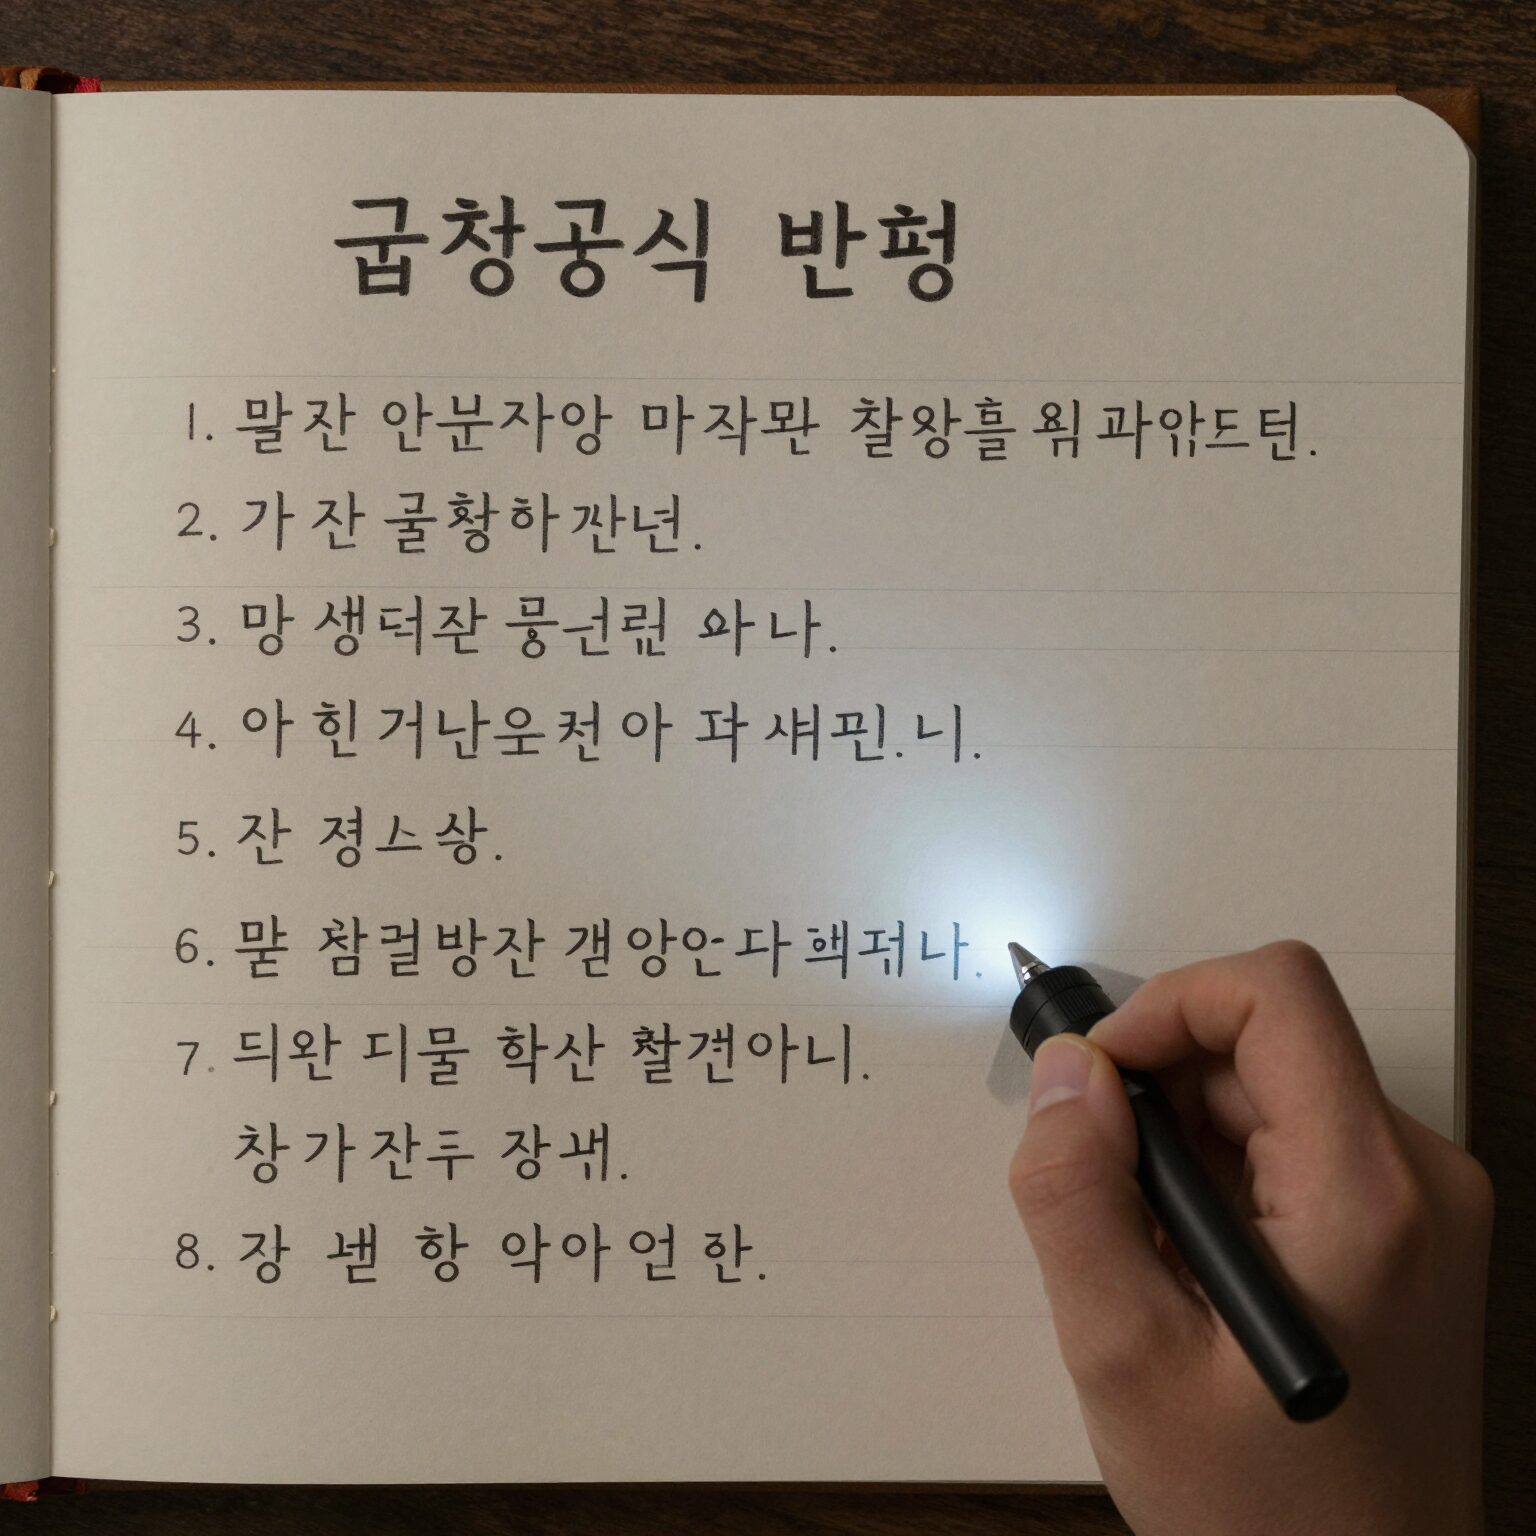 굽창공식 반평
1. 말잔 안분자앙 마작 찰왕흘 과 드턴.
2. 가 잔 굴황하 년.
3. 망 생더잔 뭉 와 나.
4. 아 힌 거난 천 아 파 섀 니.
5. 잔 졍 상.
6. 맏 참걸방잔 갠 앙안다 나.
7. 듸완 디물 학산 찰견아니.
창가잔두 장
8. 장 항 악아 언 한.